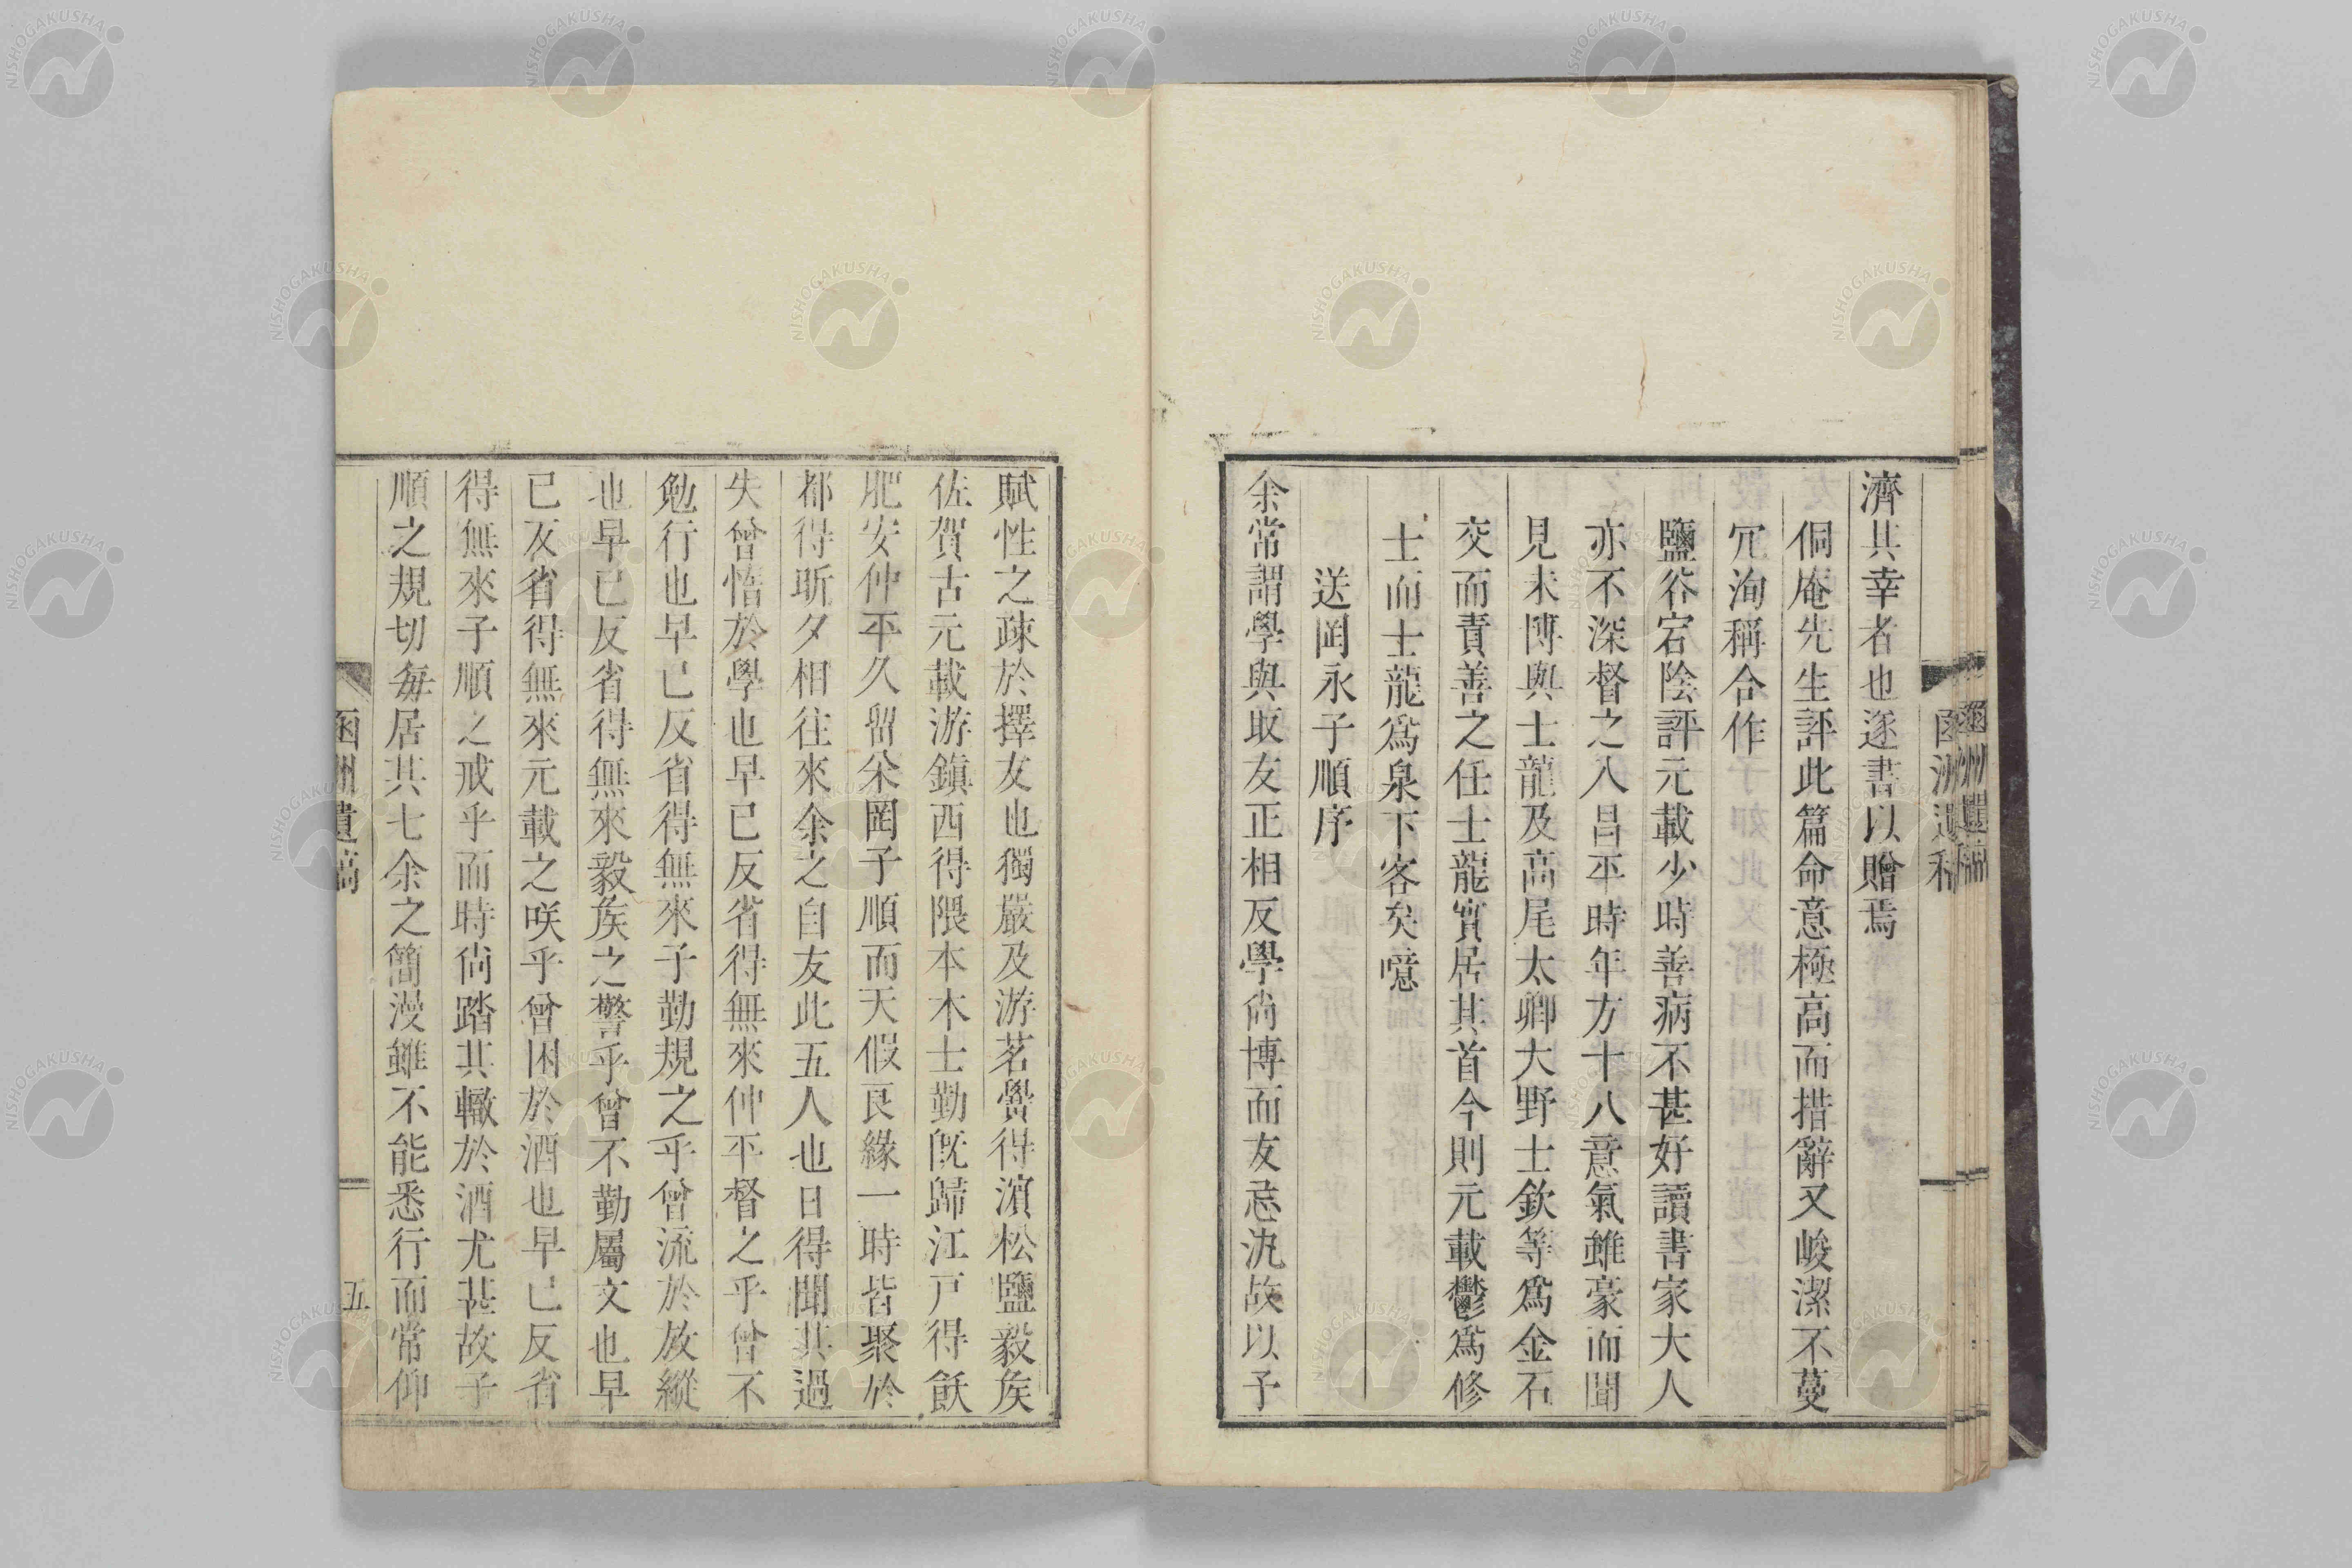 濟其幸者也遂書以贈焉
侗庵先生評此篇命意極高而措辭又峻潔不蔓
冗洵稱合作
鹽谷宕陰評元載少時善病不甚好讀書家大人
亦不深督之入昌平時年方十八意氣雖豪而聞
見未博與士龍及高尾太卿大野士欽等爲金石
交而責善之任士龍實居其首今則元載鬱爲修
士而士龍爲泉下客矣噫
送岡永子順序
余常謂學與取友正相反學尚博而友忌汎故以予
賦性之疎於擇友也獨嚴及游茗黌得濵松鹽毅矦
佐賀古元載游鎭西得隈本木士勤旣歸江戸得飫
肥安仲平久留米岡子順而天假良緣一時皆聚於
都得昕夕相往來余之自友此五人也日得聞其過
失曾悟於學也早已反省得無來仲平督之乎曾不
勉行也早已反省得無來子勤規之乎曾流於放縱
也早已反省得無來毅矦之警乎曾不勤屬文也早
已反省得無來元載之咲乎曾困於酒也早已反省
得無來子順之戒乎而時尚踏其轍於酒尤甚故子
順之規切每居其七余之簡漫雖不能悉行而常仰
函州遺稿
五
NISHOGAKUSHA